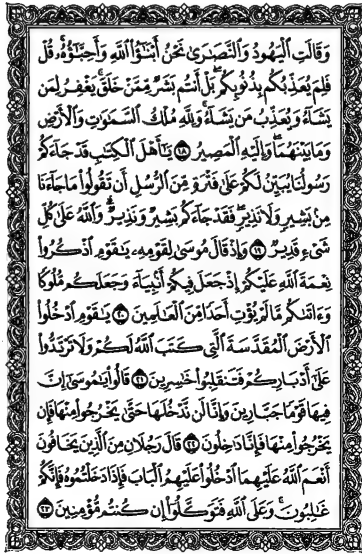 وَقَالَتِ ٱلْيَهُودُ وَٱلنَّصَٰرَىٰ نَحْنُ أَبْنَٰٓؤُا۟ ٱللَّهِ وَأَحِبَّٰٓؤُهُۥۚ قُلْ
فَلِمَ يُعَذِّبُكُم بِذُنُوبِكُمۖ بَلْ أَنتُم بَشَرٌ مِّمَّنْ خَلَقَۚ يَغْفِرُ لِمَن
يَشَآءُ وَيُعَذِّبُ مَن يَشَآءُۚ وَلِلَّهِ مُلْكُ ٱلسَّمَٰوَٰتِ وَٱلْأَرْضِ
وَمَا بَيْنَهُمَاۖ وَإِلَيْهِ ٱلْمَصِيرُ ١٨ يَٰٓأَهْلَ ٱلْكِتَٰبِ قَدْ جَآءَكُمْ
رَسُولُنَا يُبَيِّنُ لَكُمْ عَلَىٰ فَتْرَةٍ مِّنَ ٱلرُّسُلِ أَن تَقُولُوا۟ مَا جَآءَنَا
مِنۢ بَشِيرٍ وَلَا نَذِيرٍۖ فَقَدْ جَآءَكُم بَشِيرٌ وَنَذِيرٌۗ وَٱللَّهُ عَلَىٰ كُلِّ
شَىْءٍ قَدِيرٌ ١٩ وَإِذْ قَالَ مُوسَىٰ لِقَوْمِهِۦ يَٰقَوْمِ ٱذْكُرُوا۟
نِعْمَةَ ٱللَّهِ عَلَيْكُمْ إِذْ جَعَلَ فِيكُمْ أَنۢبِيَآءَ وَجَعَلَكُم مُّلُوكًا
وَءَاتَىٰكُم مَّا لَمْ يُؤْتِ أَحَدًا مِّنَ ٱلْعَٰلَمِينَ ٢٠ يَٰقَوْمِ ٱدْخُلُوا۟
ٱلْأَرْضَ ٱلْمُقَدَّسَةَ ٱلَّتِى كَتَبَ ٱللَّهُ لَكُمْ وَلَا تَرْتَدُّوا۟
عَلَىٰٓ أَدْبَارِكُمْ فَتَنقَلِبُوا۟ خَٰسِرِينَ ٢١ قَالُوا۟ يَٰمُوسَىٰٓ إِنَّ
فِيهَا قَوْمًا جَبَّارِينَ وَإِنَّا لَن نَّدْخُلَهَا حَتَّىٰ يَخْرُجُوا۟ مِنْهَا فَإِن
يَخْرُجُوا۟ مِنْهَا فَإِنَّا دَٰخِلُونَ ٢٢ قَالَ رَجُلَانِ مِنَ ٱلَّذِينَ يَخَافُونَ
أَنْعَمَ ٱللَّهُ عَلَيْهِمَا ٱدْخُلُوا۟ عَلَيْهِمُ ٱلْبَابَ فَإِذَا دَخَلْتُمُوهُ فَإِنَّكُمْ
غَٰلِبُونَۚ وَعَلَى ٱللَّهِ فَتَوَكَّلُوٓا۟ إِن كُنتُم مُّؤْمِنِينَ ٢٣